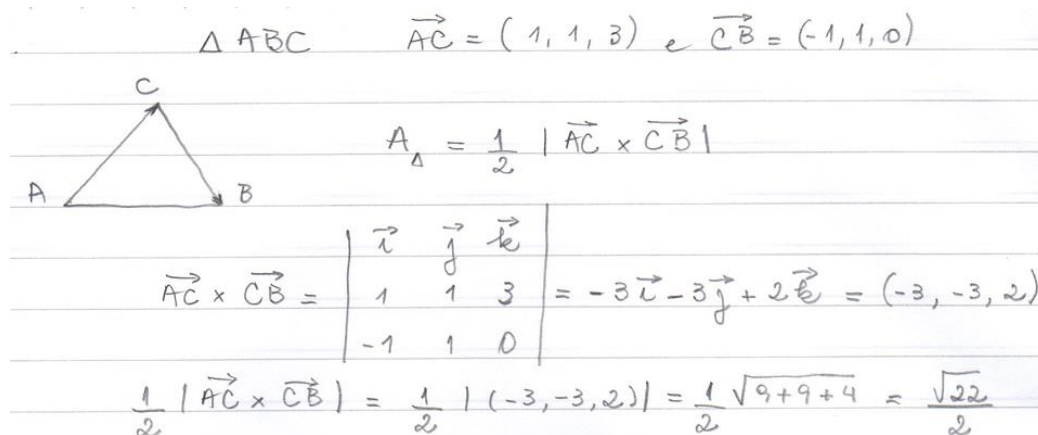 Δ ABC  →AC = (1, 1, 3) e →CB = (-1, 1, 0)
C
A_Δ = 1/2 | →AC × →CB |
A B
→AC × →CB = | →i →j →k ; 1 1 3 ; -1 1 0 | = -3→i - 3→j + 2→k = (-3, -3, 2)
1/2 | →AC × →CB | = 1/2 | (-3, -3, 2) | = 1/2 √(9+9+4) = √22/2